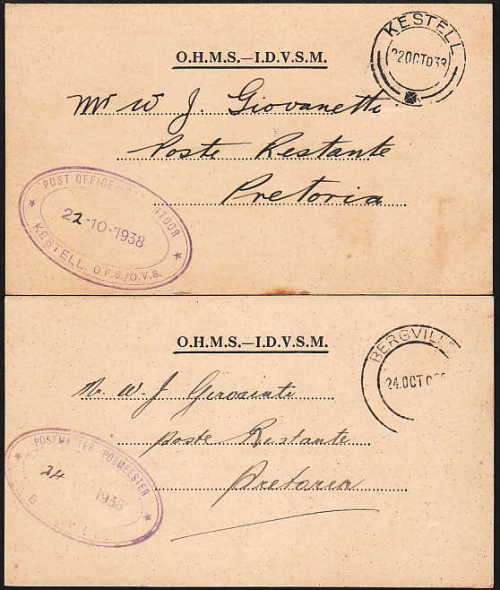 KESTELL
22 OCT 38
O.H.M.S.—I.D.V.S.M.
Mr W J. Giovanetti
Poste Restante
Pretoria
POST OFFICE
22-10-1938
KESTELL. O.F.S./O.V.S.
BERGVILLE
24.OCT
O.H.M.S.—I.D.V.S.M.
Mr. W. J.
Poste Restante
Pretoria
POSTMASTER-POSMEESTER
24 1938